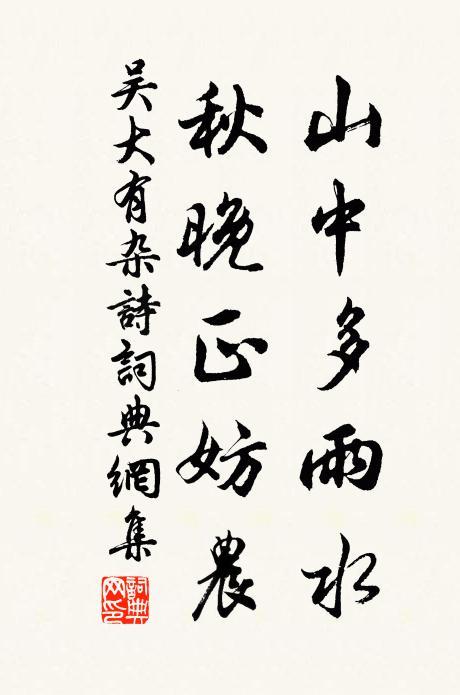 山中多雨水
秋晚正妨農
吴大有杂詩詞典網集
詞典網印